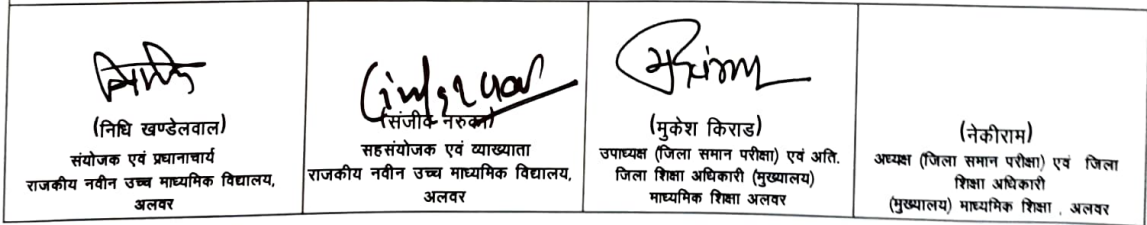 (निधि खण्डेलवाल)
संयोजक एवं प्रधानाचार्य
राजकीय नवीन उच्च माध्यमिक विद्यालय,
अलवर
(संजीव नरुका)
सहसंयोजक एवं व्याख्याता
राजकीय नवीन उच्च माध्यमिक विद्यालय,
अलवर
(मुकेश किराड)
उपाध्यक्ष (जिला समान परीक्षा) एवं अति.
जिला शिक्षा अधिकारी (मुख्यालय)
माध्यमिक शिक्षा अलवर
(नेकीराम)
अध्यक्ष (जिला समान परीक्षा) एवं जिला
शिक्षा अधिकारी
(मुख्यालय) माध्यमिक शिक्षा , अलवर